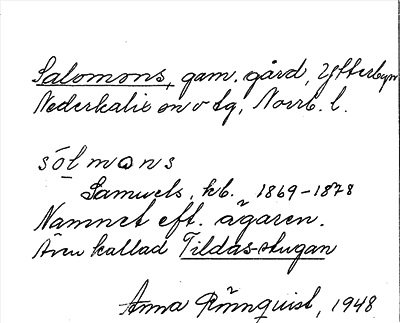 Salomons, gam. gård, Ytterbyn
Nederkalix sn o tg, Norrb. l.
sòlmans
Samuels, kb. 1869-1878
Namnet eft. ägaren.
Även kallad Tildas-stugan
Anna Rönnquist, 1948